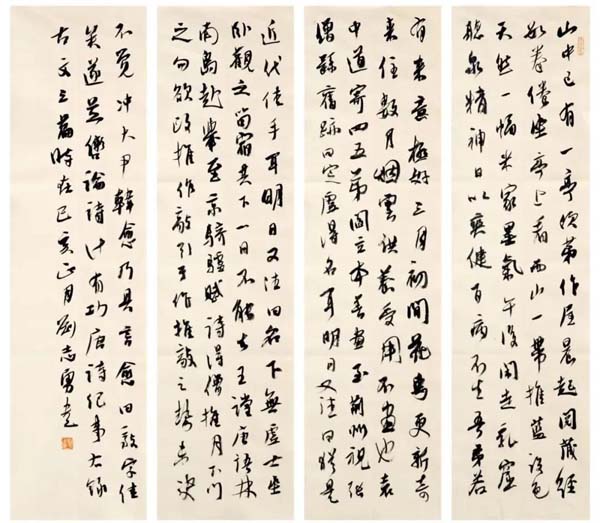 山中已有一亭次第作屋晨起閱藏經
數卷倦坐亭上看西山一帶堆藍設色
天然一幅米家墨氣午後閑走乳窟
聽泉精神日以爽健百病不生吾弟若
有來意極好三月初間花鳥更新奇
來住數月烟雲供養受用不盡也袁
中道寄四五弟閻立本善畫至荊州視張
僧繇舊跡曰定虛得名耳明日又往曰猶是
近代佳手耳明日又往曰名下無虛士坐
臥觀之留宿其下一日不能去王讜唐語林
島赴舉至京騎驢賦詩得僧推月下門
之句欲改推作敲引手作推敲之勢未決
不覺沖大尹韓愈乃具言愈曰敲字佳
矣遂並轡論詩計有功唐詩紀事右錄
古文三篇時在己亥正月劉志勇書